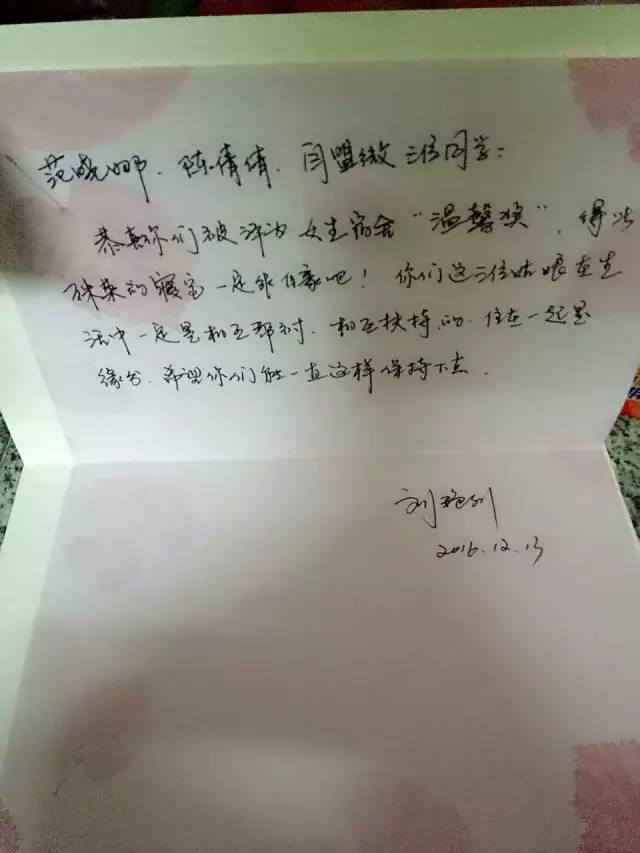 范晓娜、陈倩倩、闫盟微三位同学：
恭喜你们被评为女生宿舍“温馨奖”，得此
殊荣的寝室一定很自豪吧！你们这三位姑娘在生
活中一定是相互帮衬、相互扶持的，住在一起是
缘分，希望你们能一直这样保持下去。
刘
2016.12.13